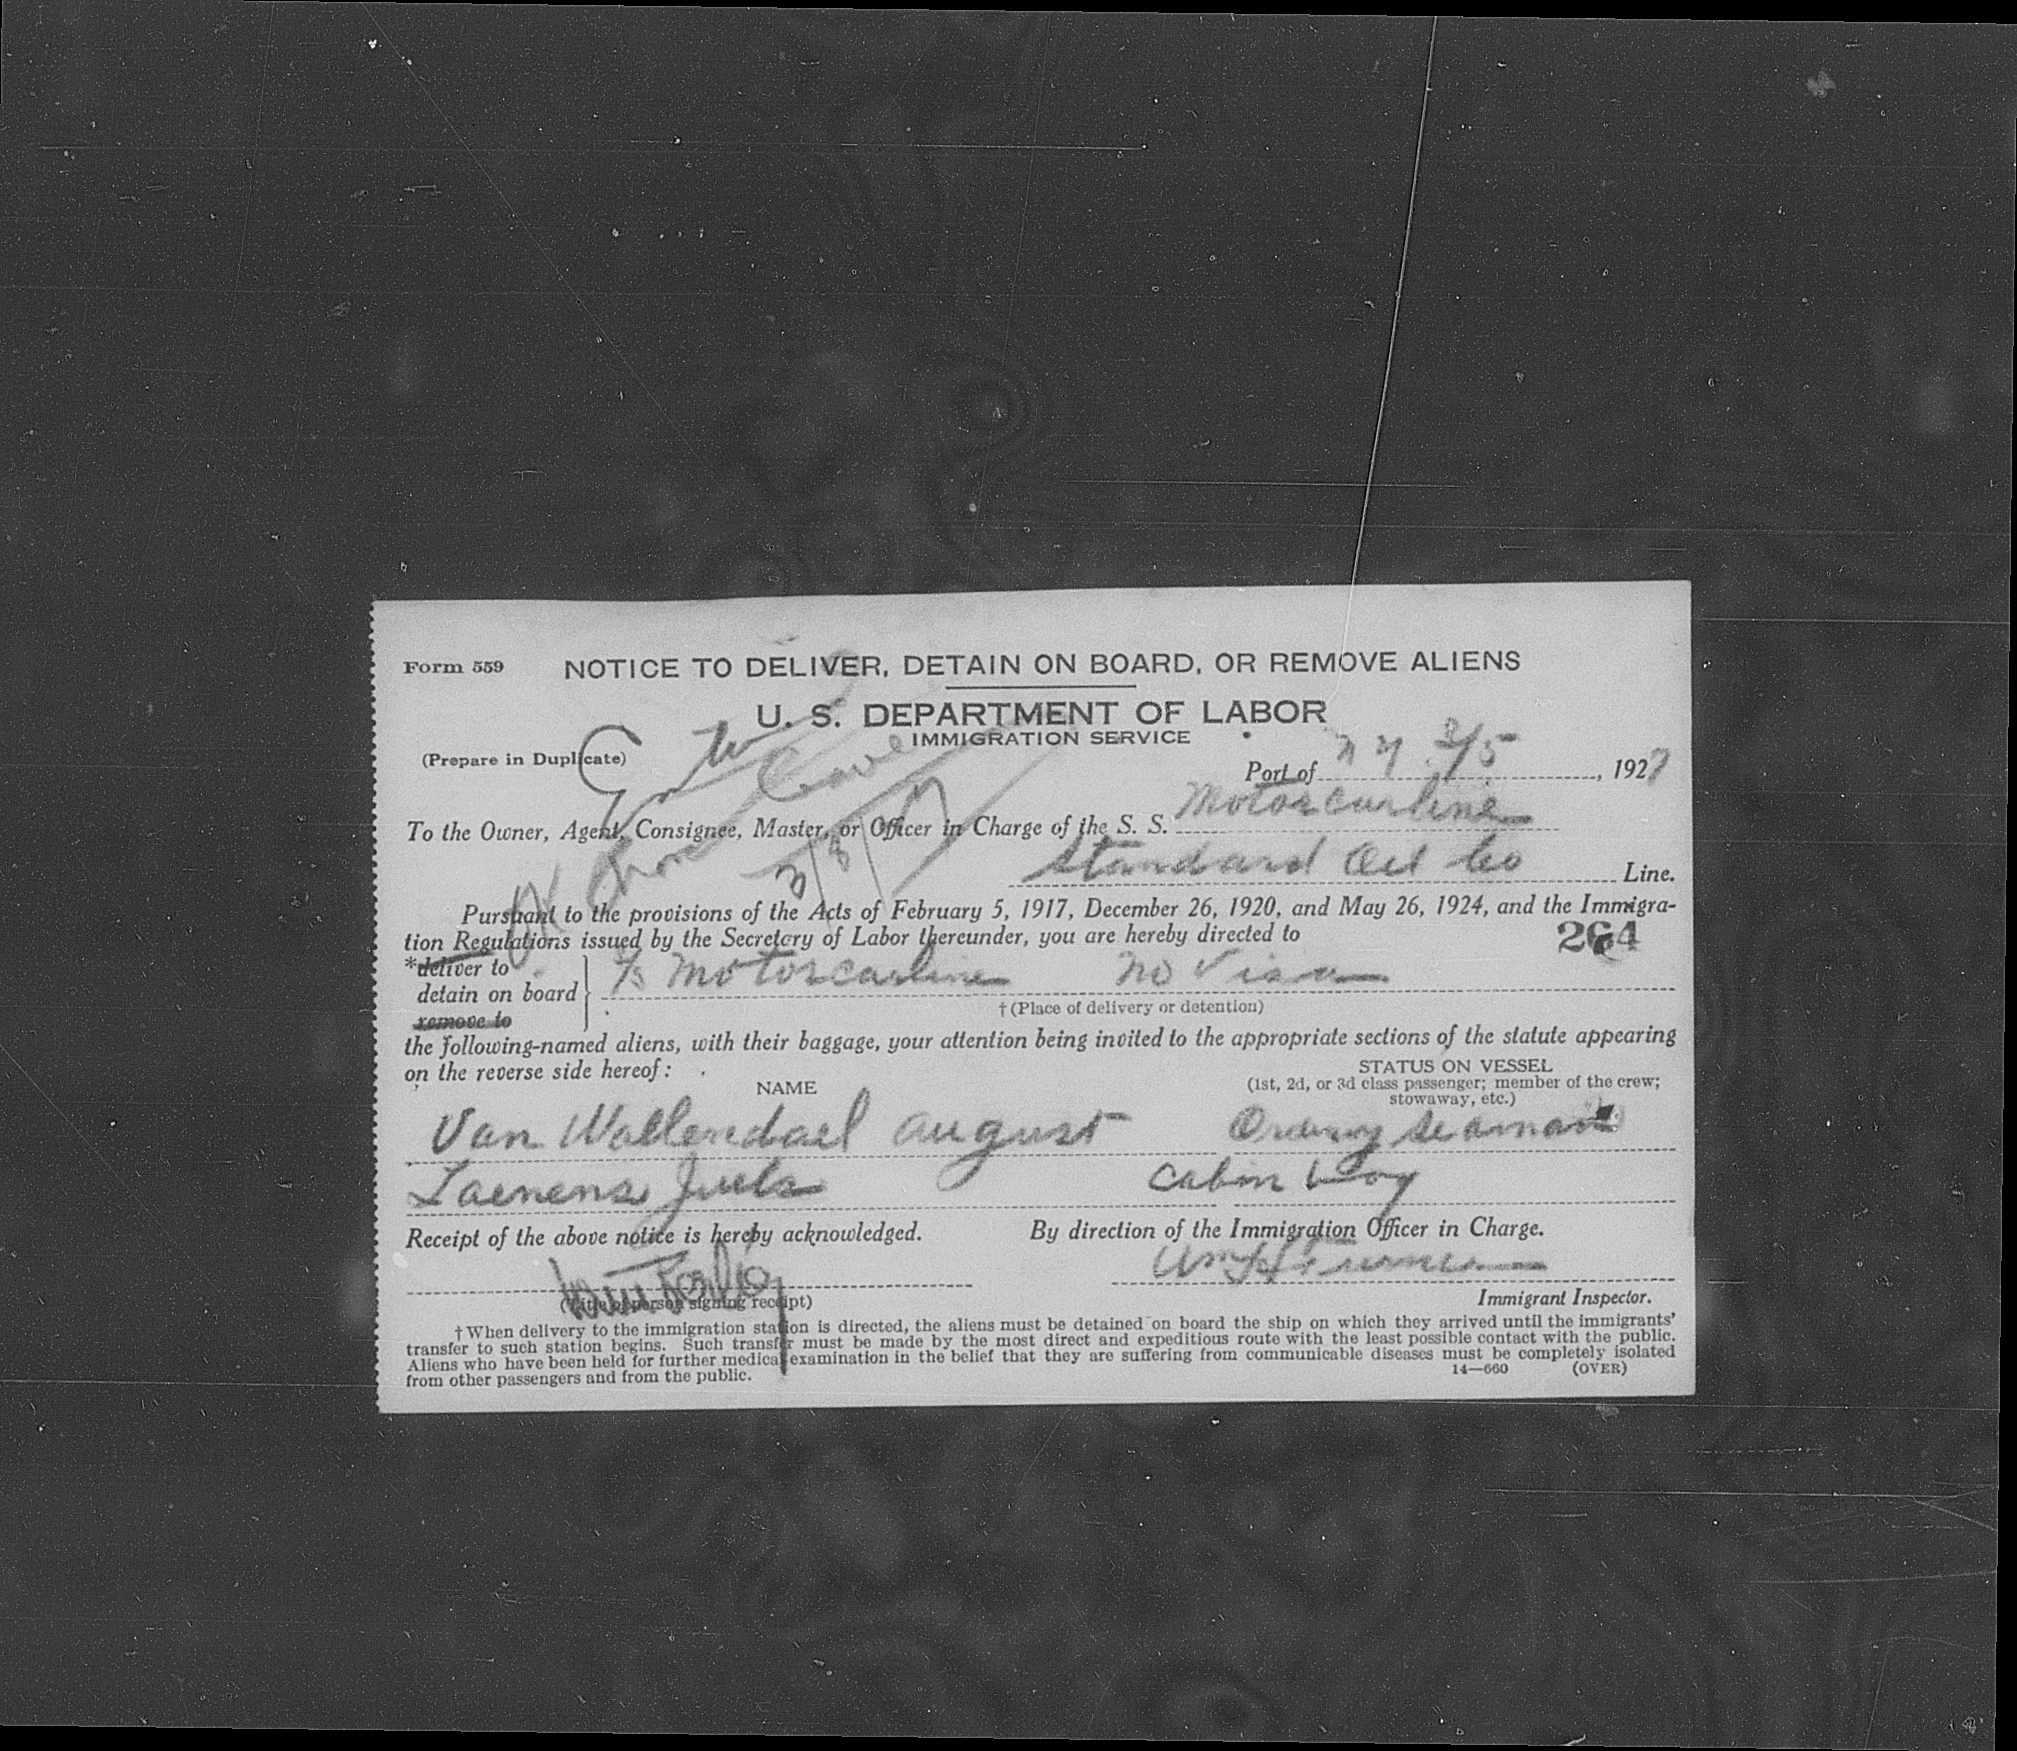 Form 559
NOTICE TO DELIVER, DETAIN ON BOARD, OR REMOVE ALIENS
U. S. DEPARTMENT OF LABOR
IMMIGRATION SERVICE
(Prepare in Duplicate)
Port of N Y 3/5, 1927
To the Owner, Agent, Consignee, Master, or Officer in Charge of the S. S. Motorcarline
Standard Oil Co Line.
OK Shore Leave
3/8/27
Pursuant to the provisions of the Acts of February 5, 1917, December 26, 1920, and May 26, 1924, and the Immigra-
tion Regulations issued by the Secretary of Labor thereunder, you are hereby directed to
264
*deliver to
detain on board } S/S Motorcarline No Visa
remove to
†(Place of delivery or detention)
the following-named aliens, with their baggage, your attention being invited to the appropriate sections of the statute appearing
on the reverse side hereof:
NAME
STATUS ON VESSEL
(1st, 2d, or 3d class passenger; member of the crew;
stowaway, etc.)
Van Wallendael August Ordinary seaman
Laenens Juels Cabin boy
Receipt of the above notice is hereby acknowledged.
By direction of the Immigration Officer in Charge.
(Title of person signing receipt)
Immigrant Inspector.
†When delivery to the immigration station is directed, the aliens must be detained on board the ship on which they arrived until the immigrants'
transfer to such station begins. Such transfer must be made by the most direct and expeditious route with the least possible contact with the public.
Aliens who have been held for further medical examination in the belief that they are suffering from communicable diseases must be completely isolated
from other passengers and from the public.
14—660 (OVER)